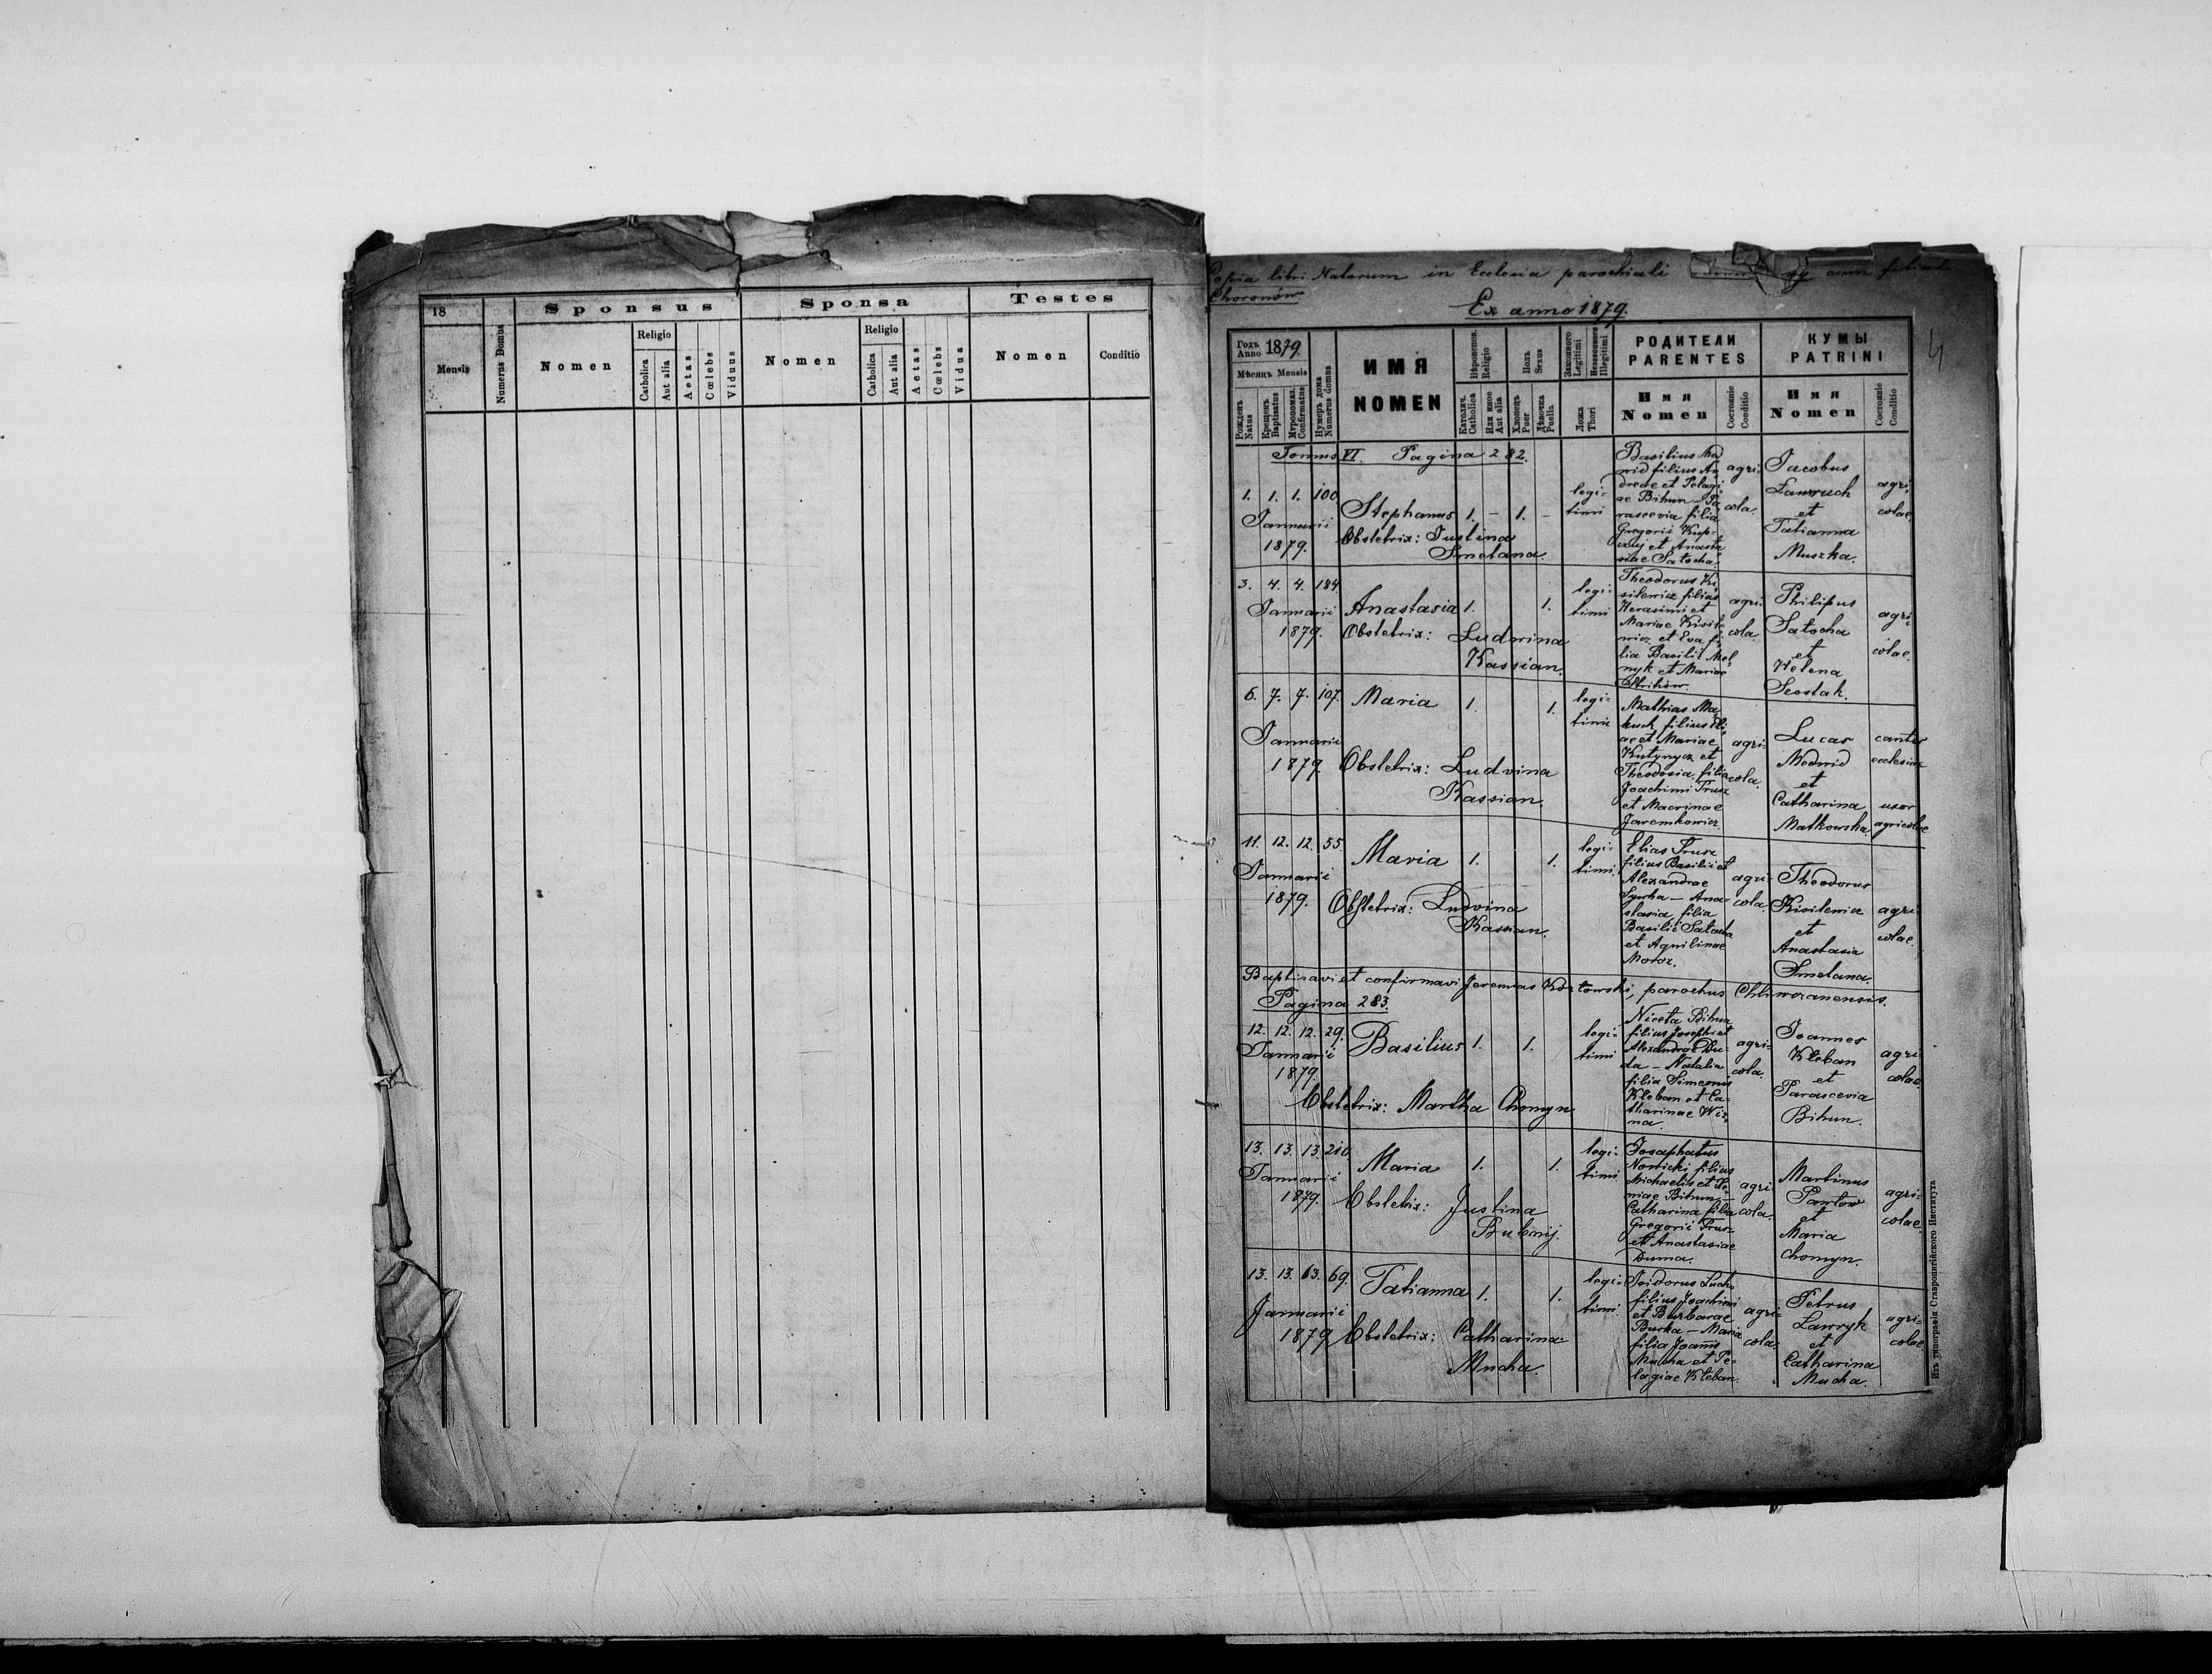 18
Sponsus
Sponsa
Testes
Mensis
Numerus Domus
Nomen
Religio
Catholica
Aut alia
Aetas
Cœlebs
Viduus
Nomen
Religio
Catholica
Aut alia
Aetas
Cœlebs
Vidua
Nomen
Conditio
Copia libri Natorum in Ecclesia parochiali
cum filiali
Choronów
Ex anno 1879.
4
Годъ
Anno 1879.
Мѣсяцъ Mensis
Рожденъ
Natus
Крещенъ
Baptisatus
Мѵропомаз.
Confirmatus
Нумеръ дома
Numerus domus
ИМЯ
NOMEN
Вѣроисповѣд.
Religio
Католич.
Catholica
Или иное
Aut alia
Полъ
Sexus
Хлопецъ
Puer
Дѣвочка
Puella
Законного
Legitimi
Незаконного
Illegitimi
Ложа
Thori
РОДИТЕЛИ
PARENTES
Имя
Nomen
Состояніе
Conditio
КУМЫ
PATRINI
Имя
Nomen
Состояніе
Conditio
Tomus VI. Pagina 282.
1. 1. 1. 100
Januarii
1879.
Stephanus 1. – 1. –
Obstetrix: Justina
Smetana.
legi-
timi
Basilius Me
wid filius An
dreae et Pelagi
ae Bihun – Pa
rascevia filia
Gregorii
et Anasta
siae Satocha.
agri-
cola.
Jacobus
Ławruch
et
Tatianna
Muszka.
agri-
colae.
3. 4. 4. 184.
Januarii
1879.
Anastasia 1. 1.
Obstetrix: Ludwina
Kassian.
legi-
timi
Theodorus Ki
silewicz filius
Herasimi et
Mariae Kisile
wicz et Eva fi-
lia Basilii Mel
nyk et Mariae
agri-
cola.
Philipus
Satocha
et
Helena
Szostak.
agri-
colae.
6. 7. 7. 107.
Januarii
1879.
Maria 1. 1.
Obstetrix: Ludvina
Kassian.
legi-
timi
Mathias Ma-
kuch filius Eli-
ae et Mariae
Kutynycz et
Theodosia filia
Joachimi Prusz
et Macrinae
Jaremkowicz.
agri-
cola.
Lucas
Medwid
et
Catharina
Matkowska.
cantor
ecclesiae
uxor
agricolae
11. 12. 12. 55.
Januarii
1879.
Maria 1. 1.
Obstetrix: Ludvina
Kassian.
legi-
timi.
Elias Prusz
filius Basilii et
Alexandrae
– Ana-
stasia filia
Basilii Satocha
et Aquilinae
Moroz.
agri-
cola
Theodorus
Kisilewicz
et
Anastasia
Smetana.
agri-
colae.
Baptisavi et confirmavi Jeremias Kozłowski, parochus Chliwczanensis.
Pagina 283.
12. 12. 12. 29.
Januarii
1879.
Basilius 1. 1.
Obstetrix: Martha Chomyn
legi-
timi
Niceta Bihun
filius Josephi et
Alexandrae Du-
da – Natalia
filia Simeonis
Kleban et Ca-
tharinae
agri-
cola.
Joannes
Kleban
et
Parascevia
Bihun.
agri-
colae.
13. 13. 13. 210.
Januarii
1879.
Maria 1. 1.
Obstetrix: Justina
legi-
timi
Josaphatus
Nowicki filius
Michaelis et Xe-
niae Bihun –
Catharina filia
Gregorii Prusz
et Anastasiae
Duma.
agri-
cola.
Martinus
et
Maria
Chomyn.
agri-
colae.
13. 13. 13. 69.
Januarii
1879
Tatianna 1. 1.
Obstetrix: Catharina
Mucha.
legi-
timi.
Isidorus
filius Joachimi
et Barbarae
Burka – Maria
filia Joannis
Mucha et Pe-
lagiae Kleban.
agri-
cola.
Petrus
Lawryk
et
Catharina
Mucha.
agri-
colae
Изъ типографіи Ставропигійского Института